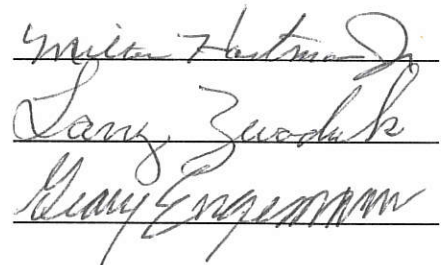 Milton Hartman Jr
Larry Zwoduk
Geary Engemann